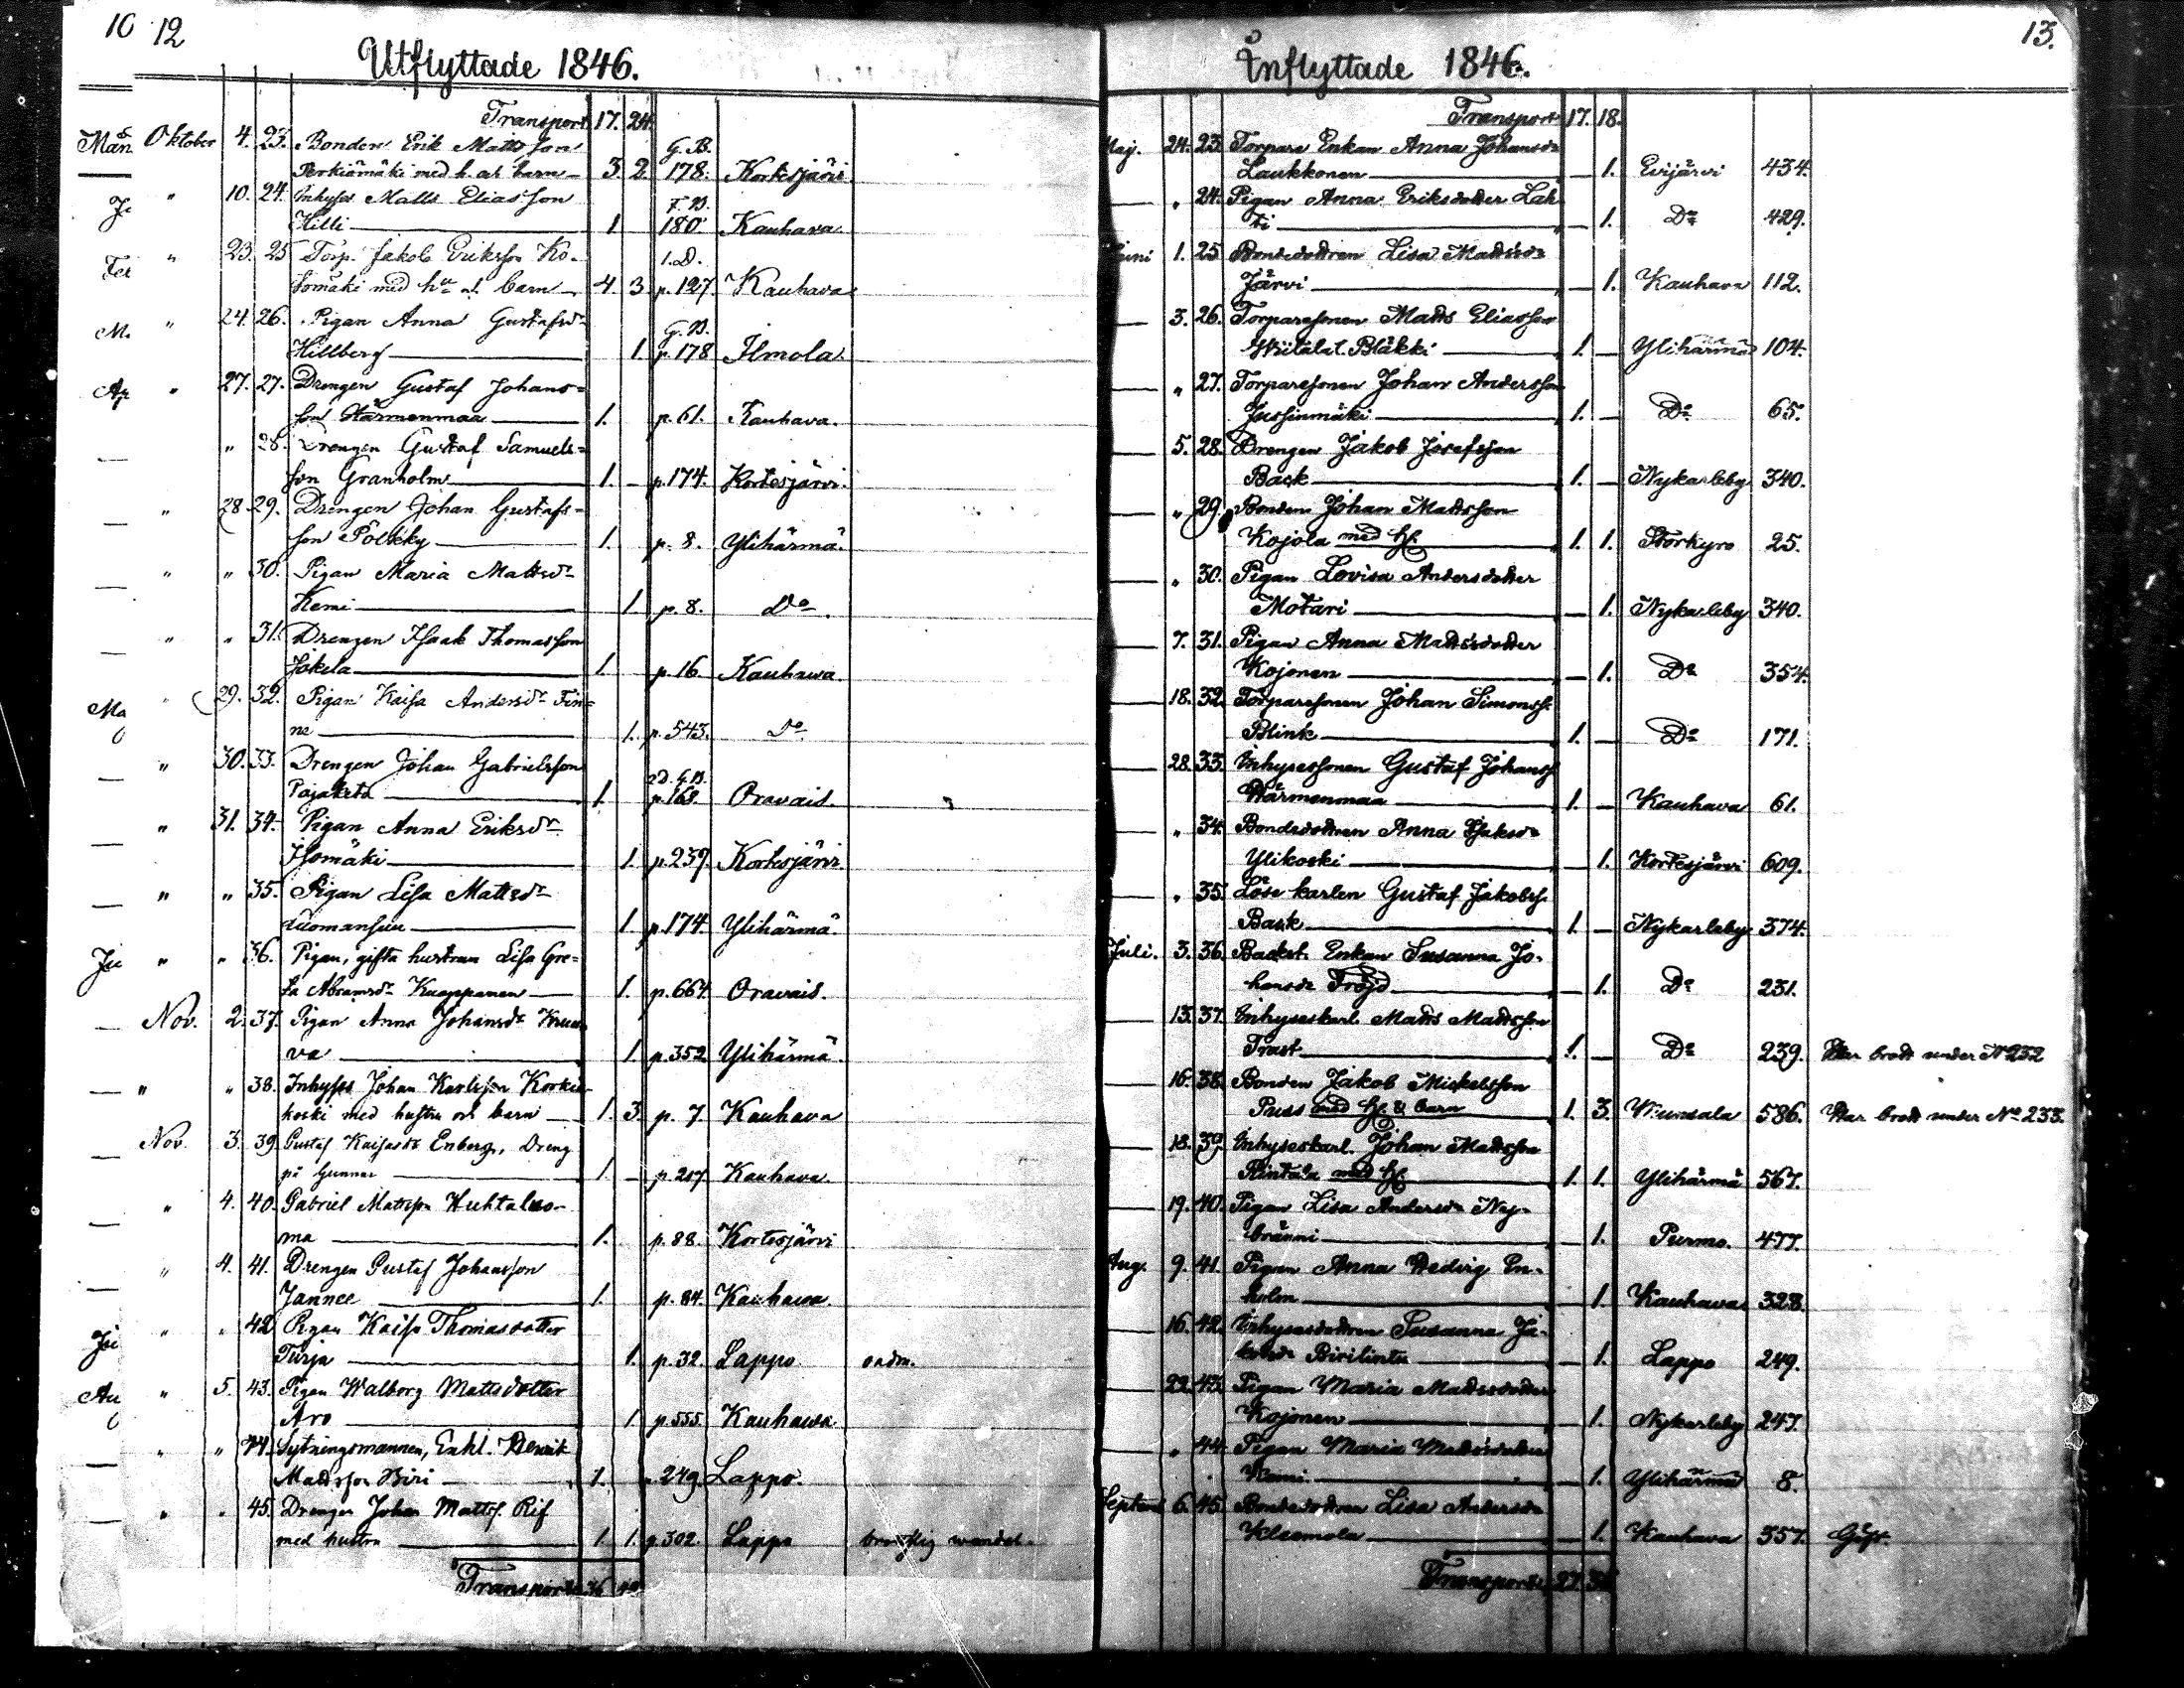 10 12
Utflyttade 1846.
Transport 17. 24.
Mån Oktober 4. 23. Bonden Erik Mattsson G.B.
Perkiömäki med h. och barn 3. 2. 178. Kortesjärvi
" 10. 24. Inhyses Matts Eliasson F.B.
Hilli 1 180 Kauhava.
" 23. 25 Torp. Jakob Eriksson Ko- 1.D.
somäki med hu o. barn 4. 3. p. 127 Kauhava
" 24. 26. Pigan Anna Gustafsdr G.B.
Hillberg 1. p. 178 Ilmola.
Ap " 27. 27. Drengen Gustaf Johans-
son Härmenmaa 1. p. 61. Kauhava.
" 28. Drengen Gustaf Samuels-
son Granholm 1. - p. 174. Kortesjärvi.
" 28. 29. Drengen Johan Gustafs-
son Pölkky 1. p. 8. Ylihärmä.
" " 30. Pigan Maria Mattsdr
Kemi 1. p. 8. Do
" " 31. Drengen Isaak Thomasson
Jokela 1. p. 16. Kauhava.
" 29. 32. Pigan Kaisa Andersdr Fin-
ne 1. p. 543. Do
" 30. 33. Drengen Johan Gabrielsson 2D. G.B.
1. p. 168. Oravais.
" 31. 34. Pigan Anna Eriksdr
Isomäki 1. p. 239. Kortesjärvi
" " 35. Pigan Lisa Mattsdr
1. p. 174. Ylihärmä.
" " 36. Pigan, gifta hustrun Lisa Gre-
ta Abramsdr Kuoppanen 1. p. 664. Oravais.
Nov. 2. 37. Pigan Anna Johansdr
va 1. p. 352 Ylihärmä.
" " 38. Inhyses Johan Karlsson Korkia-
koski med hustru och barn 1. 3. p. 7 Kauhava
Nov. 3. 39. Gustaf Kaisasdr Enberg, Dreng
på Gunnar 1. - p. 207 Kauhava.
" 4. 40. Gabriel Mattsson Huhtaluo-
ma 1. p. 88. Kortesjärvi
" 4. 41. Drengen Gustaf Johansson
Jannee 1. p. 84. Kauhava.
" " 42 Pigan Kaisa Thomasdotter
Turja 1. p. 32. Lappo
" 5. 43. Pigan Walborg Mattsdotter
Aro 1. p. 555. Kauhava
" " 44. Sytningsmannen, Enkl. Henrik
Mattsson Hiri 1. 249 Lappo.
" " 45. Drengen Johan Mattss. Rif
med hustru 1. 1. p. 302. Lappo wandel.
Transport 36
13.
Inflyttade 1846.
Transport 17. 18.
Maj. 24. 23. Torpare Enkan Anna Johansdr
Laukkonen 1. Evijärvi 434.
" 24. Pigan Anna Eriksdotter Lah-
ti 1. Do 429.
Juni 1. 25. Bondedottren Lisa Mattsdr
Järvi 1. Kauhava 112.
3. 26. Torparesonen Matts Eliasson
Wiitala l. Bläkki 1. - Ylihärmä 104.
" 27. Torparesonen Johan Andersson
Jussinmäki 1. - Do 65.
5. 28. Drengen Jakob Josefsson
Back 1. - Nykarleby 340.
" 29. Bonden Johan Mattsson
Kojola med H. 1. 1. Storkyro 25.
" 30. Pigan Lovisa Andersdotter
Motari 1. Nykarleby 340.
7. 31. Pigan Anna Mattsdotter
Kojonen 1. Do 354.
18. 32. Torparesonen Johan Simonss.
Blink 1. Do 171.
28. 33. Inhysessonen Gustaf Johanss
Härmenmaa 1. - Kauhava 61.
" 34. Bondedottren Anna Isaksdr
Ylikoski 1. Kortesjärvi 609.
" 35. Löse karlen Gustaf Jakobss.
Back 1. - Nykarleby 374.
Juli. 3. 36. Backst. Enkan Susanna Jo-
hansdr Fröjd 1. Do 231.
13. 37. Inhyseskarl. Matts Mattsson
Trast 1. - Do 239. Har brott under No 232
16. 38. Bonden Jakob Mickelsson
Puss med H. & barn 1. 3. Munsala 586. Har brott under No 233.
18. 39. Inhyseskarl. Johan Mattsson
Rintala med H. 1. 1. Ylihärmä 567.
19. 40. Pigan Lisa Andersdr Ny-
bränni 1. Purmo. 477.
Aug. 9. 41. Pigan Anna Hedvig En-
holm 1. Kauhava 328.
16. 42. Inhysesdottren Susanna Ja-
kobsdr 1. Lappo 249.
22. 43. Pigan Maria Mattsdotter
Kojonen 1. Nykarleby 247.
" 44. Pigan Maria Mattsdotter
Kemi 1. Ylihärmä 8.
Septemb 6. 45. Bondedottren Lisa Andersdr
Klemola 1. Kauhava 357. Gift.
Transport 27